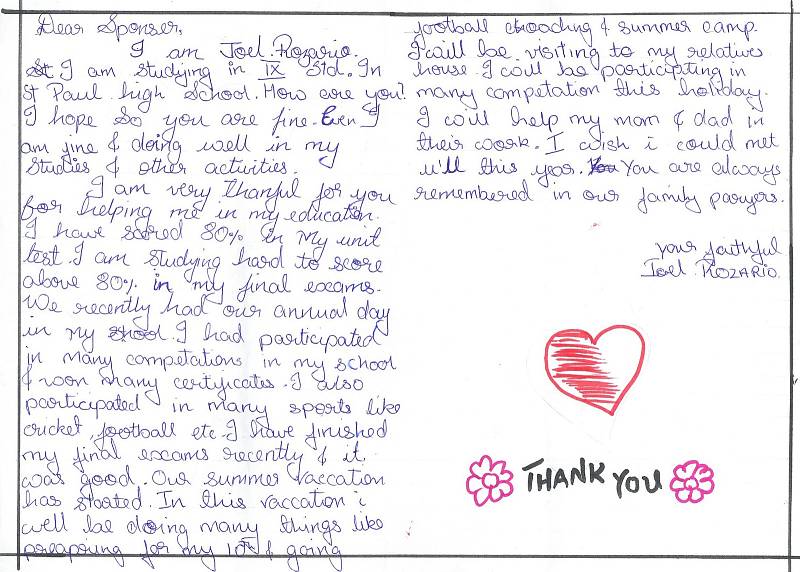 Dear Sponser,
I am Joel Rozario.
I am studying in IX Std. In
St Paul high School. How are you?
I hope so you are fine. Even I
am fine & doing well in my
studies & other activities.
I am very thanful for you
for helping me in my education.
I have scored 80% in my unit
test. I am studying hard to score
above 80% in my final exams.
We recently had our annual day
in my shool. I had participated
in many competations in my school
& woon many certificates. I also
participated in many sports like
cricket, football etc. I have finished
my final exams recently & it
was good. Our summer vaccation
has started. In this vaccation i
well be doing many things like
preapring for my 10th & going
football choaching & summer camp.
I will be visiting to my relative
house. I will be participting in
many competation this holiday.
I will help my mom & dad in
their work. I wish i could met
u'll this year. You are always
remembered in our family paryers.
your faithful
Joel ROZARIO.
THANK YOU